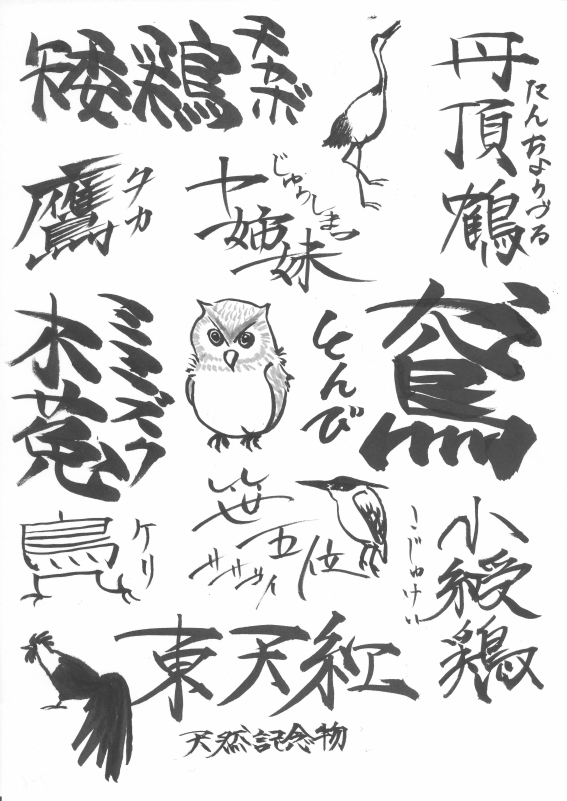 丹頂鶴
たんちょうづる
矮鶏
チャボ
鷹
タカ
十姉妹
じゅうしまつ
鳶
とんび
木菟
ミミズク
笹五位
ササゴイ
小綬鶏
こじゅけい
鳧
ケリ
東天紅
天然記念物